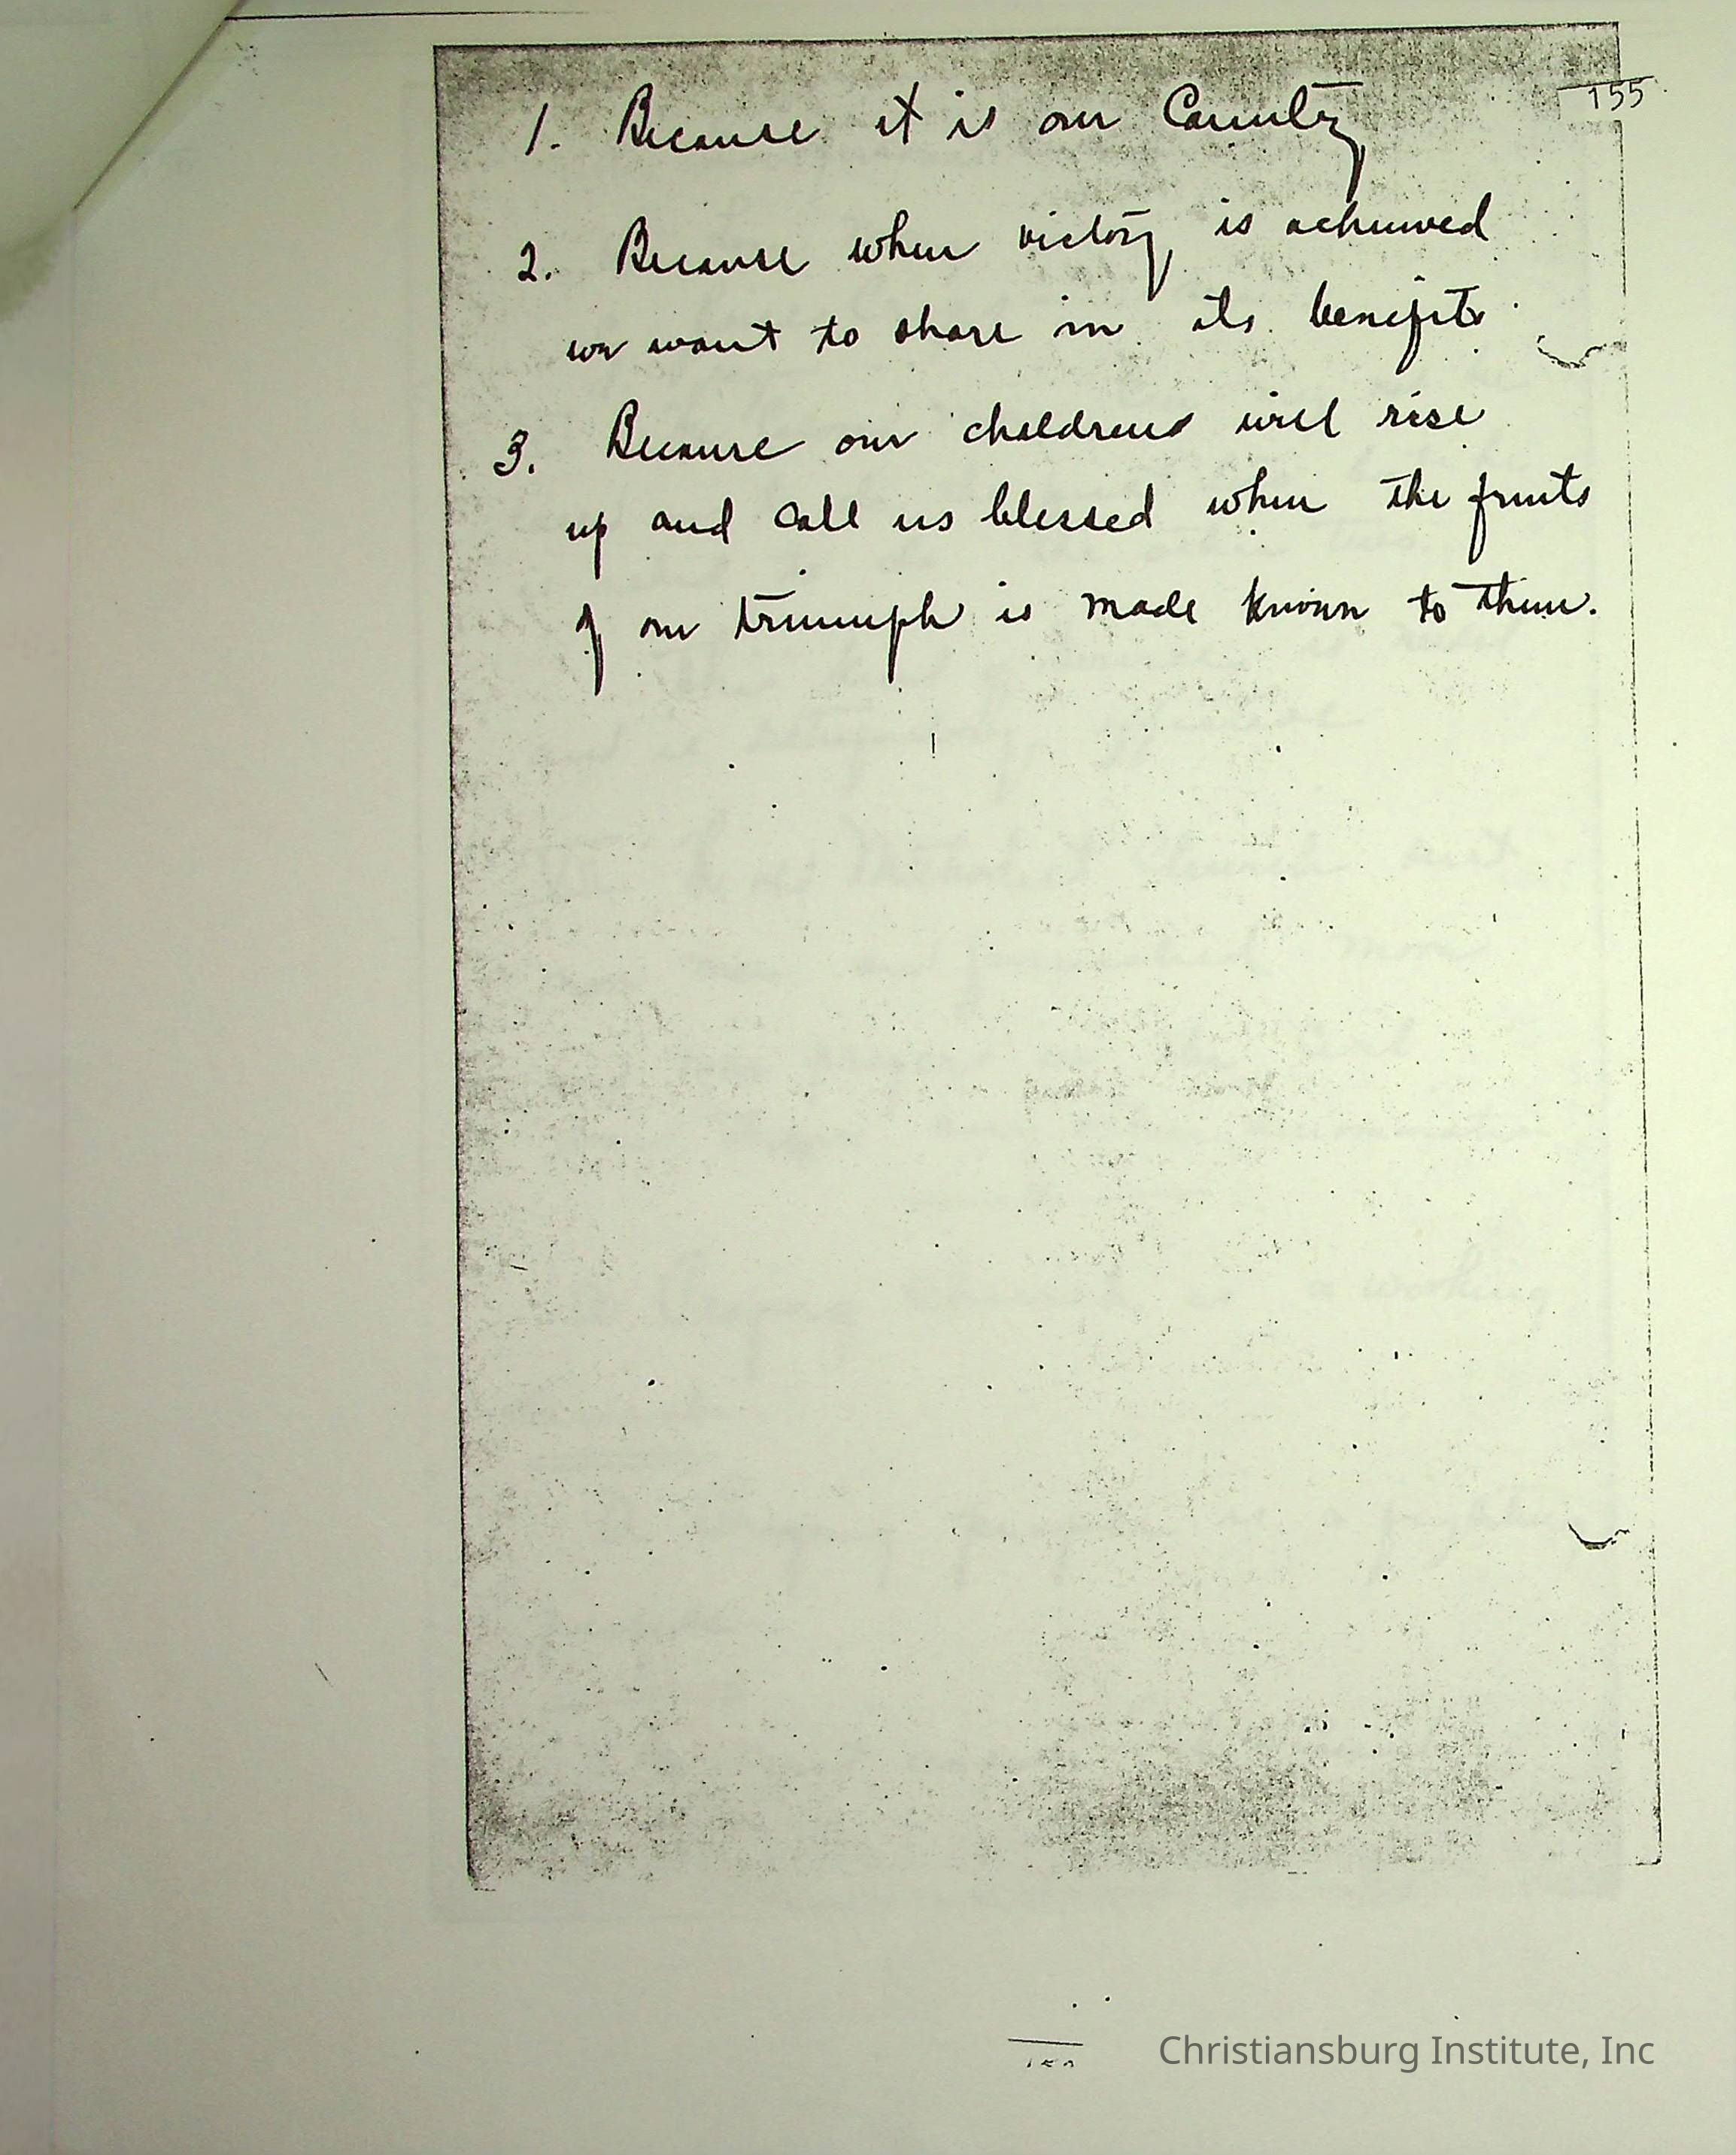 155
1. Because it is our Country
2. Because when victory is achieved
we want to share in its benefits
3. Because our childrens will rise
up and call us blessed when the fruits
of our triumph is made known to them.
Christiansburg Institute, Inc